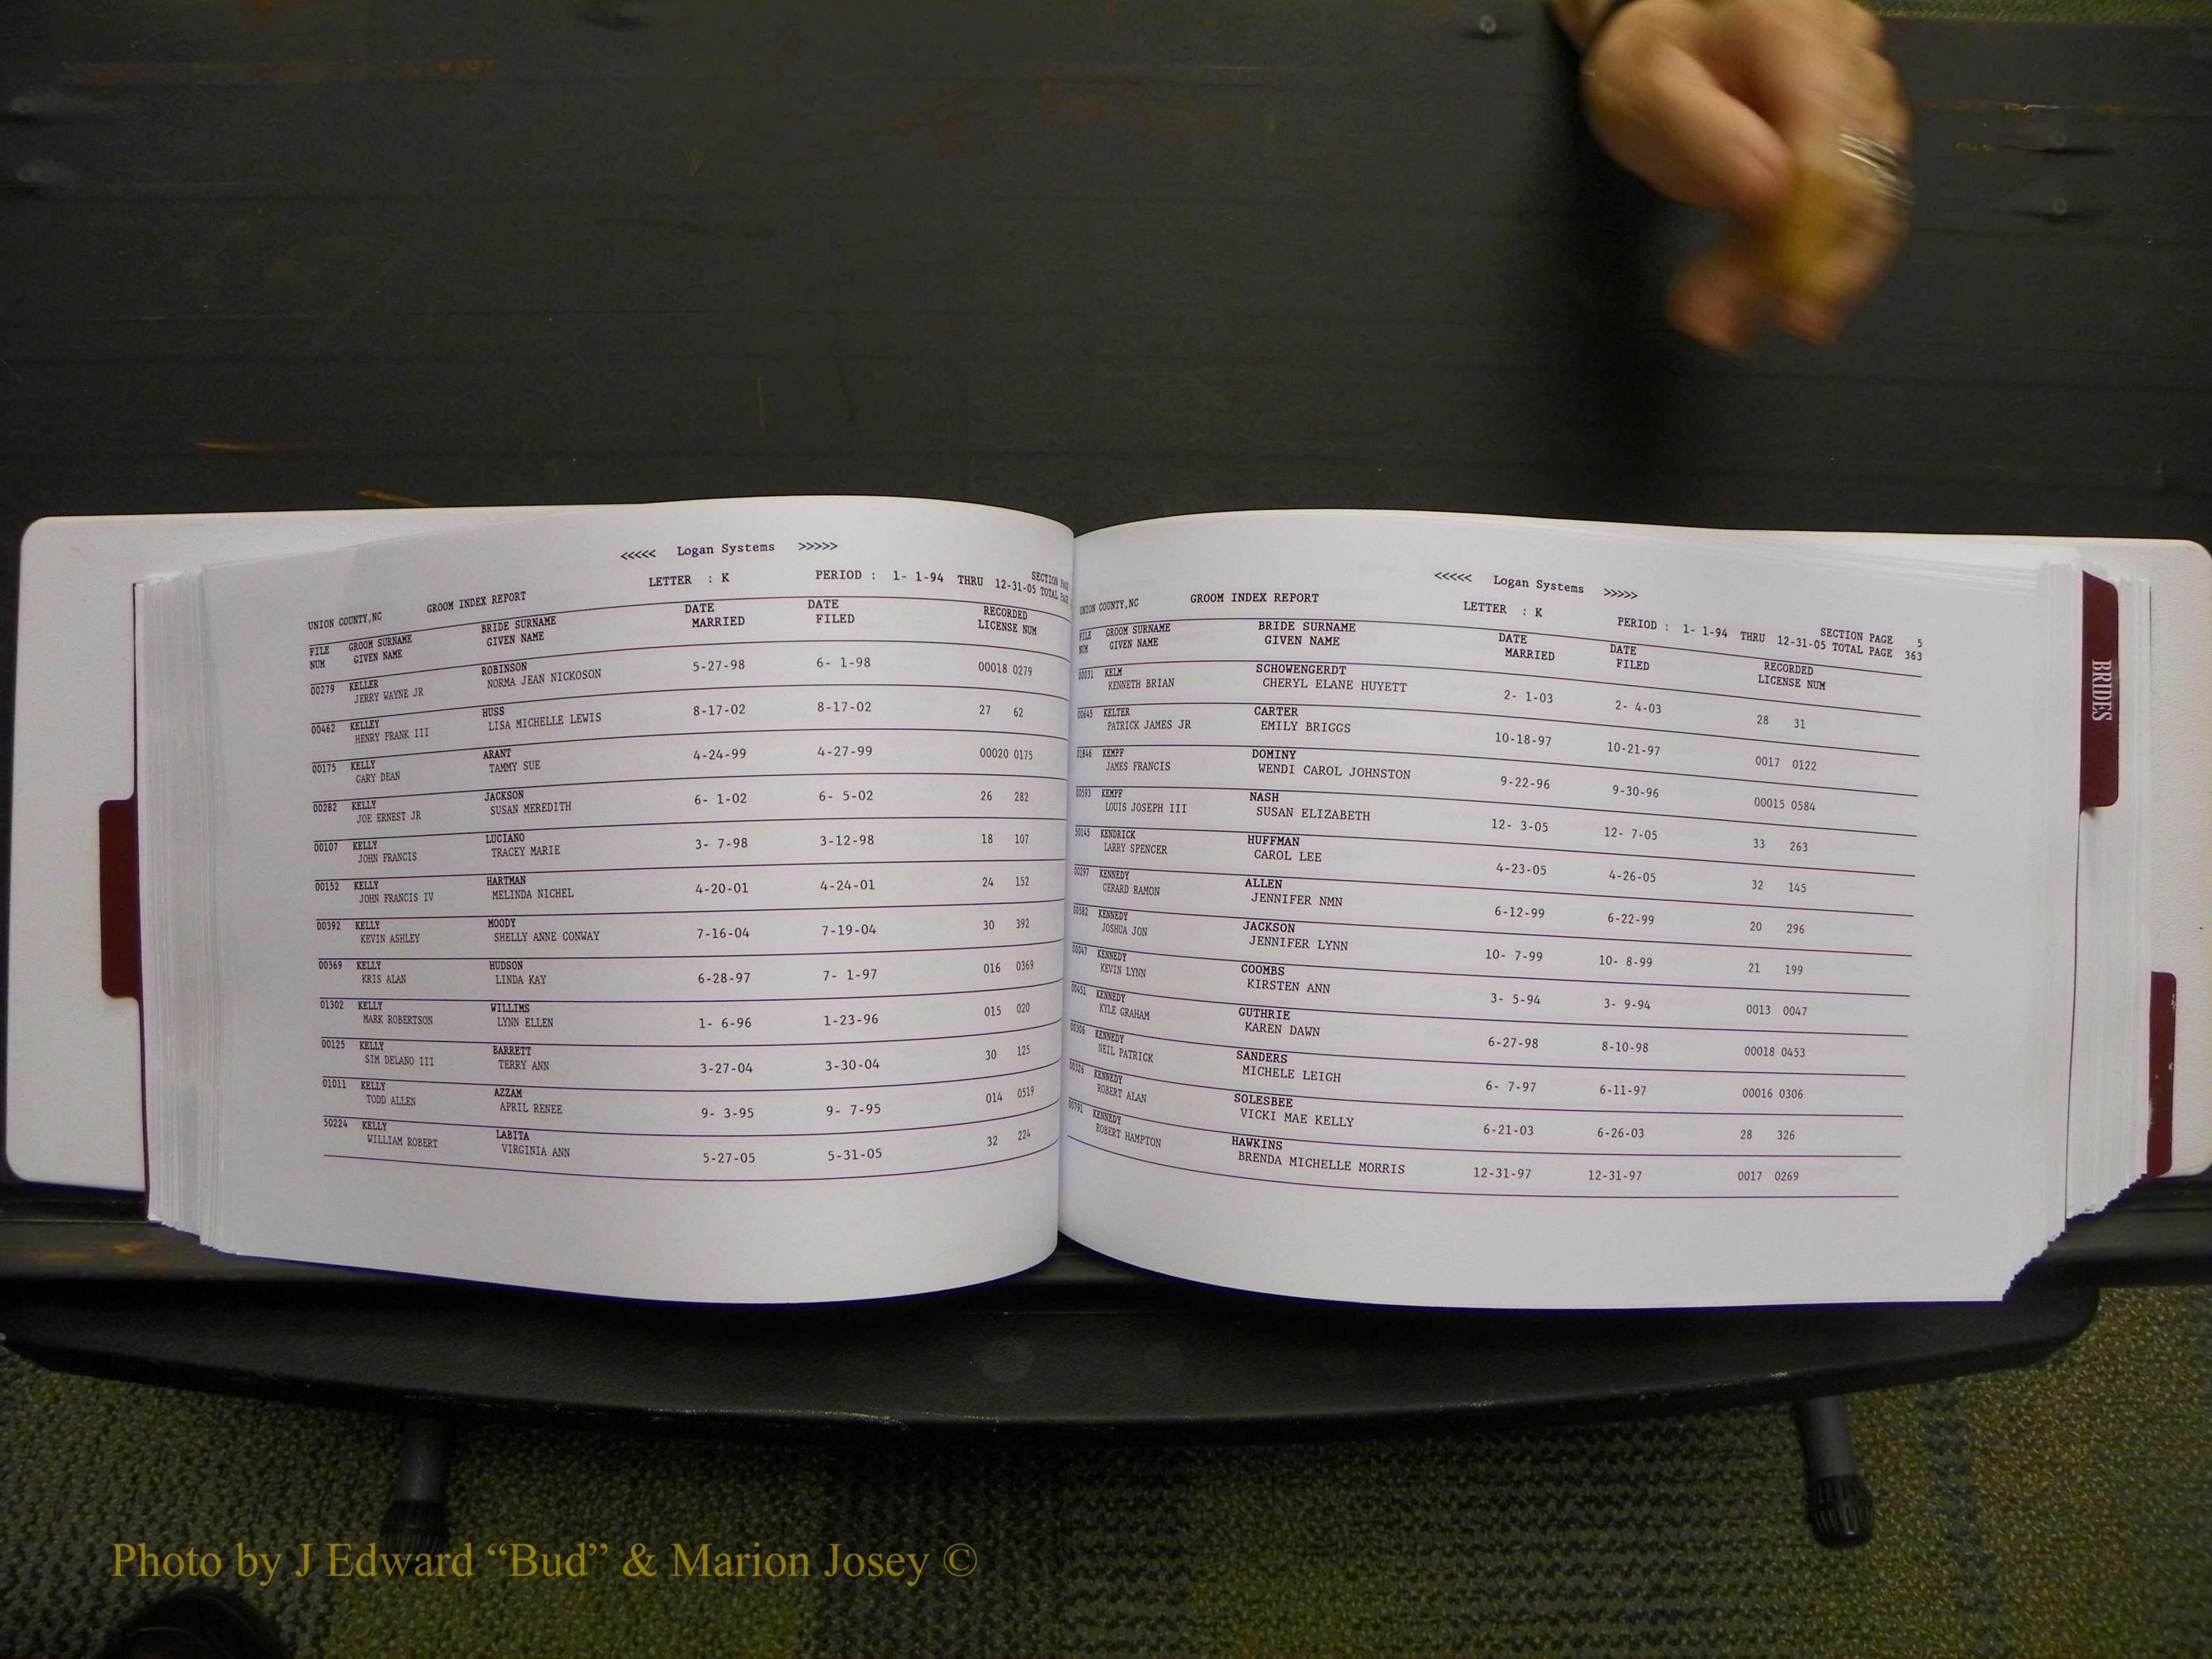 <<<<< Logan Systems >>>>>
UNION COUNTY,NC GROOM INDEX REPORT LETTER : K PERIOD : 1- 1-94 THRU 12-31-05 SECTION TOTAL
FILE GROOM SURNAME BRIDE SURNAME DATE DATE RECORDED
NUM GIVEN NAME GIVEN NAME MARRIED FILED LICENSE NUM
00279 KELLER ROBINSON 5-27-98 6- 1-98 00018 0279
JERRY WAYNE JR NORMA JEAN NICKOSON
00462 KELLEY HUSS 8-17-02 8-17-02 27 62
HENRY FRANK III LISA MICHELLE LEWIS
00175 KELLY ARANT 4-24-99 4-27-99 00020 0175
GARY DEAN TAMMY SUE
00282 KELLY JACKSON 6- 1-02 6- 5-02 26 282
JOE ERNEST JR SUSAN MEREDITH
00107 KELLY LUCIANO 3- 7-98 3-12-98 18 107
JOHN FRANCIS TRACEY MARIE
00152 KELLY HARTMAN 4-20-01 4-24-01 24 152
JOHN FRANCIS IV MELINDA NICHEL
00392 KELLY MOODY 7-16-04 7-19-04 30 392
KEVIN ASHLEY SHELLY ANNE CONWAY
00369 KELLY HUDSON 6-28-97 7- 1-97 016 0369
KRIS ALAN LINDA KAY
01302 KELLY WILLIMS 1- 6-96 1-23-96 015 020
MARK ROBERTSON LYNN ELLEN
00125 KELLY BARRETT 3-27-04 3-30-04 30 125
SIM DELANO III TERRY ANN
01011 KELLY AZZAM 9- 3-95 9- 7-95 014 0519
TODD ALLEN APRIL RENEE
50224 KELLY LABITA 5-27-05 5-31-05 32 224
WILLIAM ROBERT VIRGINIA ANN
<<<<< Logan Systems >>>>>
UNION COUNTY,NC GROOM INDEX REPORT LETTER : K PERIOD : 1- 1-94 THRU 12-31-05 SECTION PAGE 5
TOTAL PAGE 363
FILE GROOM SURNAME BRIDE SURNAME DATE DATE RECORDED
NUM GIVEN NAME GIVEN NAME MARRIED FILED LICENSE NUM
00031 KELM SCHOWENGERDT 2- 1-03 2- 4-03 28 31
KENNETH BRIAN CHERYL ELANE HUYETT
00645 KELTER CARTER 10-18-97 10-21-97 0017 0122
PATRICK JAMES JR EMILY BRIGGS
01846 KEMPF DOMINY 9-22-96 9-30-96 00015 0584
JAMES FRANCIS WENDI CAROL JOHNSTON
00593 KEMPF NASH 12- 3-05 12- 7-05 33 263
LOUIS JOSEPH III SUSAN ELIZABETH
50145 KENDRICK HUFFMAN 4-23-05 4-26-05 32 145
LARRY SPENCER CAROL LEE
00297 KENNEDY ALLEN 6-12-99 6-22-99 20 296
GERARD RAMON JENNIFER NMN
00582 KENNEDY JACKSON 10- 7-99 10- 8-99 21 199
JOSHUA JON JENNIFER LYNN
00047 KENNEDY COOMBS 3- 5-94 3- 9-94 0013 0047
KEVIN LYNN KIRSTEN ANN
00451 KENNEDY GUTHRIE 6-27-98 8-10-98 00018 0453
KYLE GRAHAM KAREN DAWN
00306 KENNEDY SANDERS 6- 7-97 6-11-97 00016 0306
NEIL PATRICK MICHELE LEIGH
00326 KENNEDY SOLESBEE 6-21-03 6-26-03 28 326
ROBERT ALAN VICKI MAE KELLY
00791 KENNEDY HAWKINS 12-31-97 12-31-97 0017 0269
ROBERT HAMPTON BRENDA MICHELLE MORRIS
BRIDES
Photo by J Edward “Bud” & Marion Josey ©